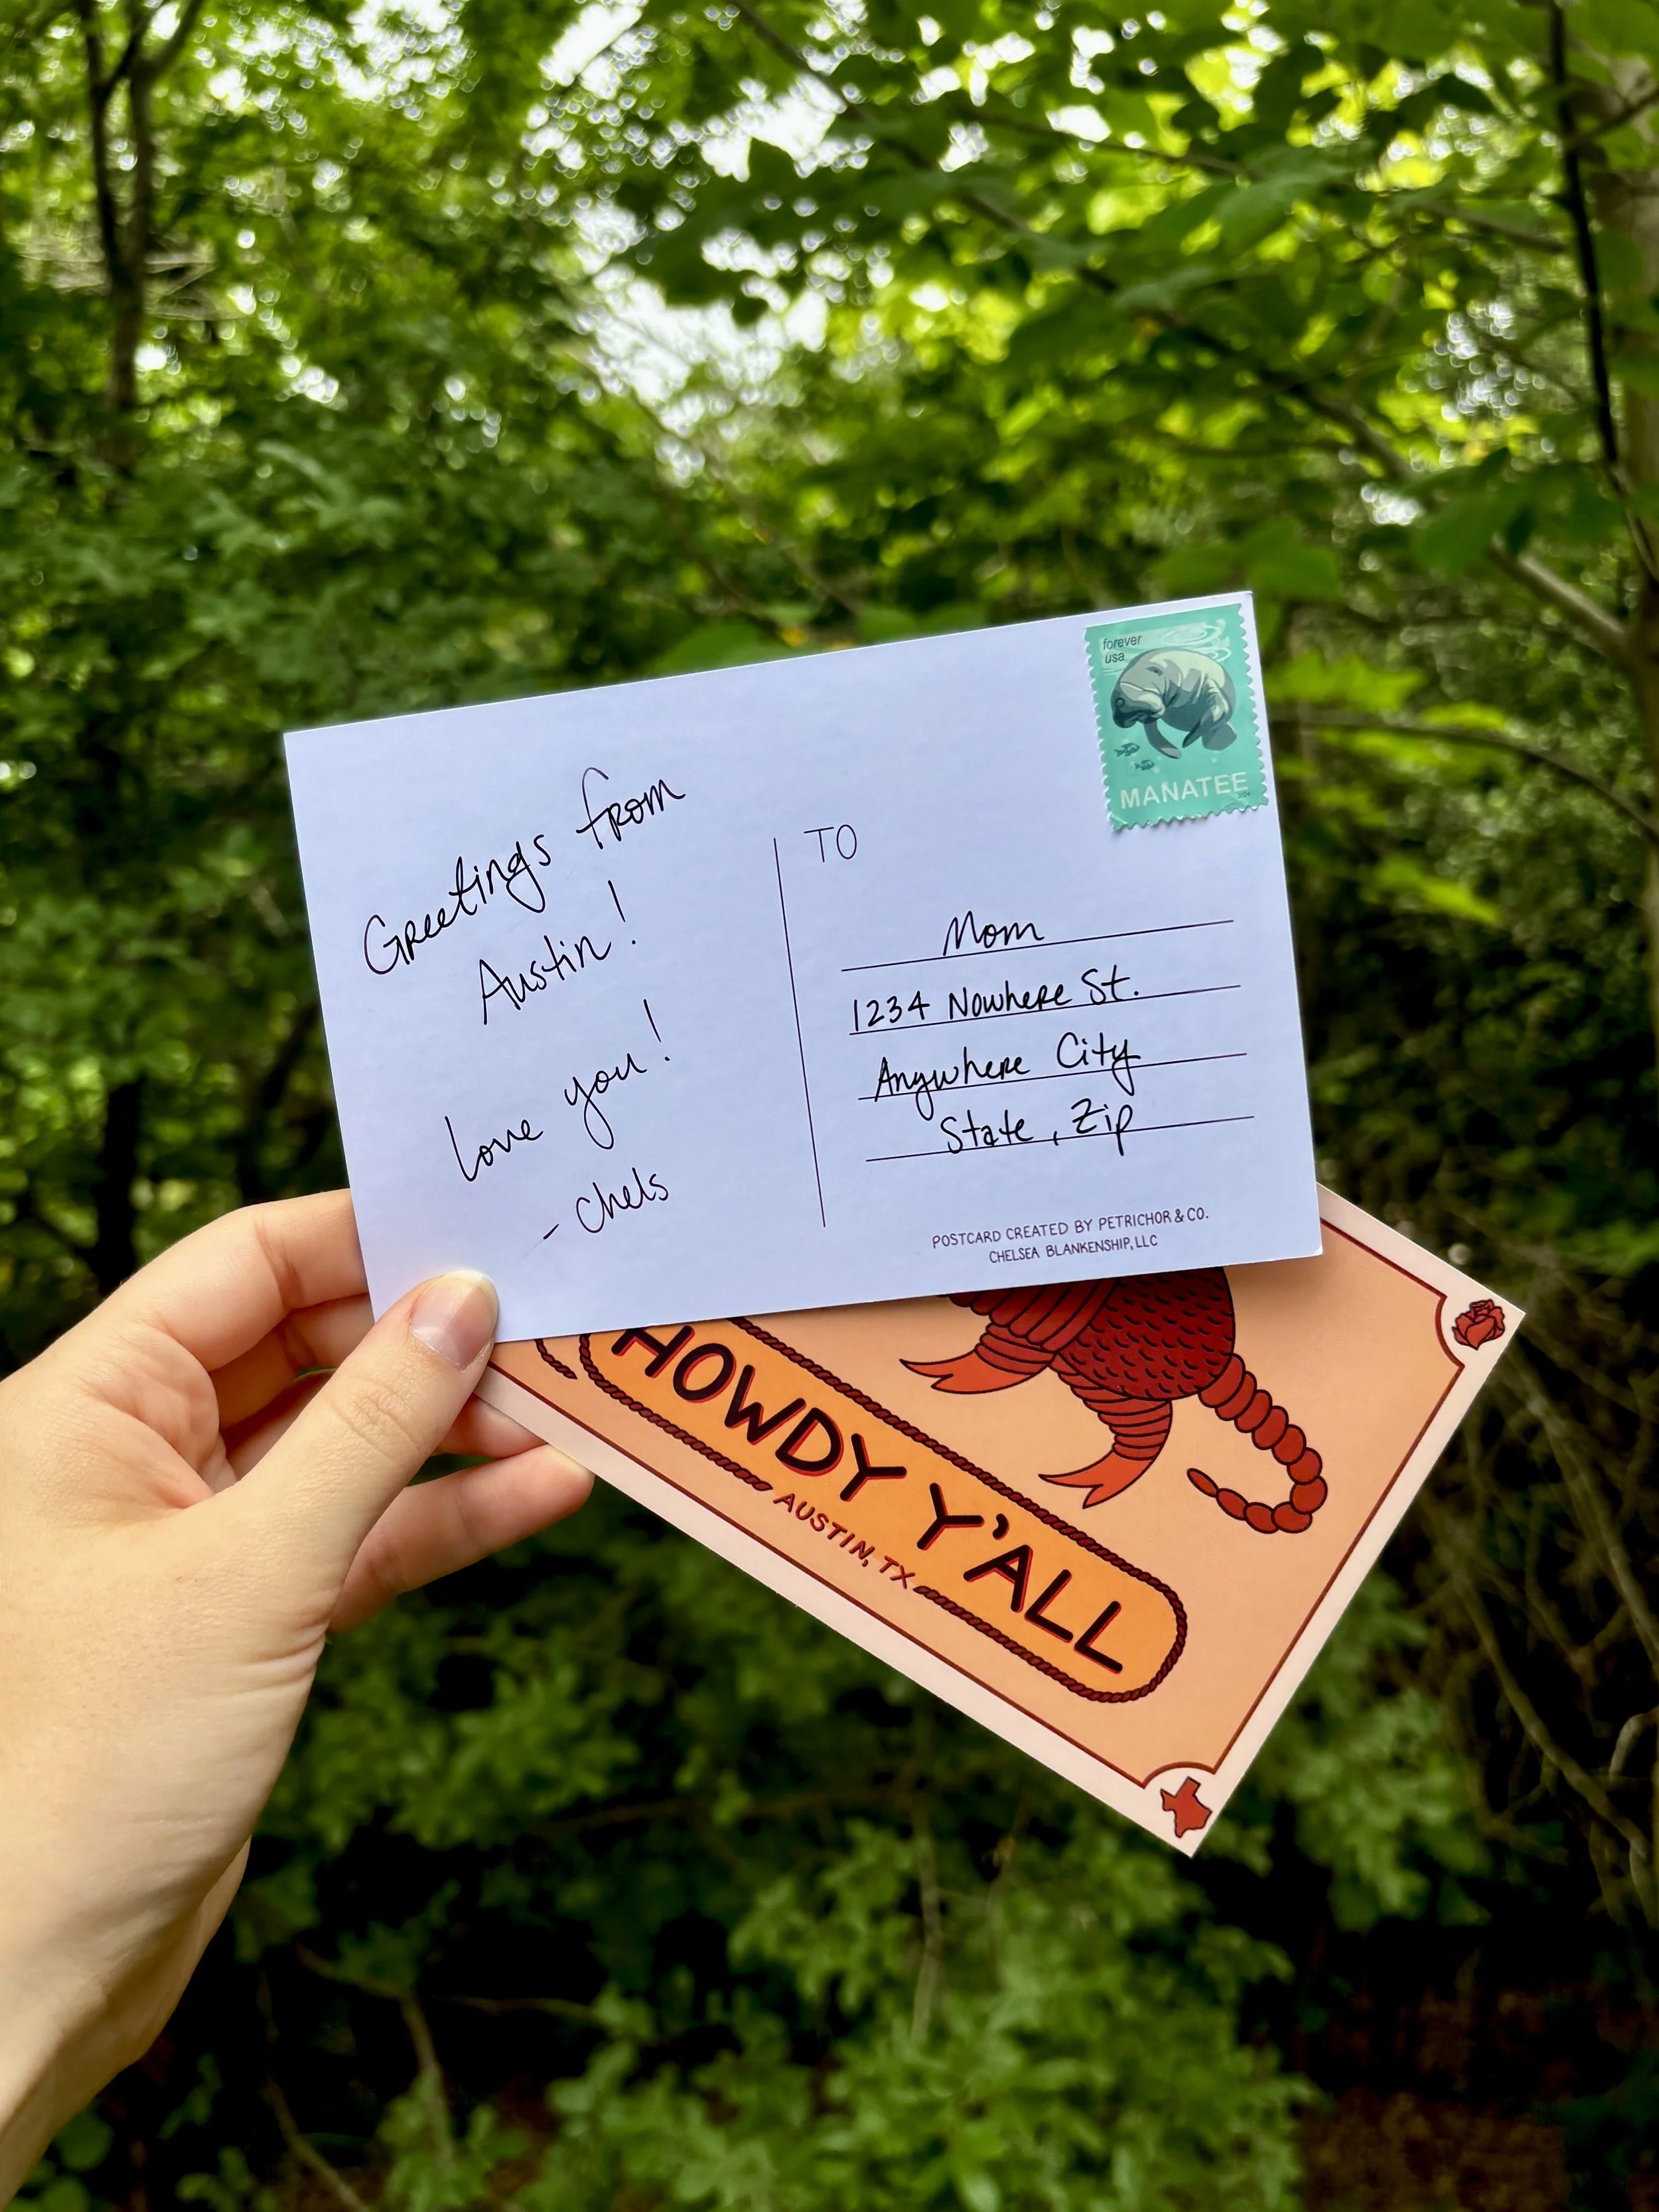 Greetings from
Austin!
Love you!
- Chels
forever
usa
MANATEE
2024
TO
Mom
1234 Nowhere St.
Anywhere City
State, Zip
POSTCARD CREATED BY PETRICHOR & CO.
CHELSEA BLANKENSHIP, LLC
HOWDY Y'ALL
AUSTIN, TX